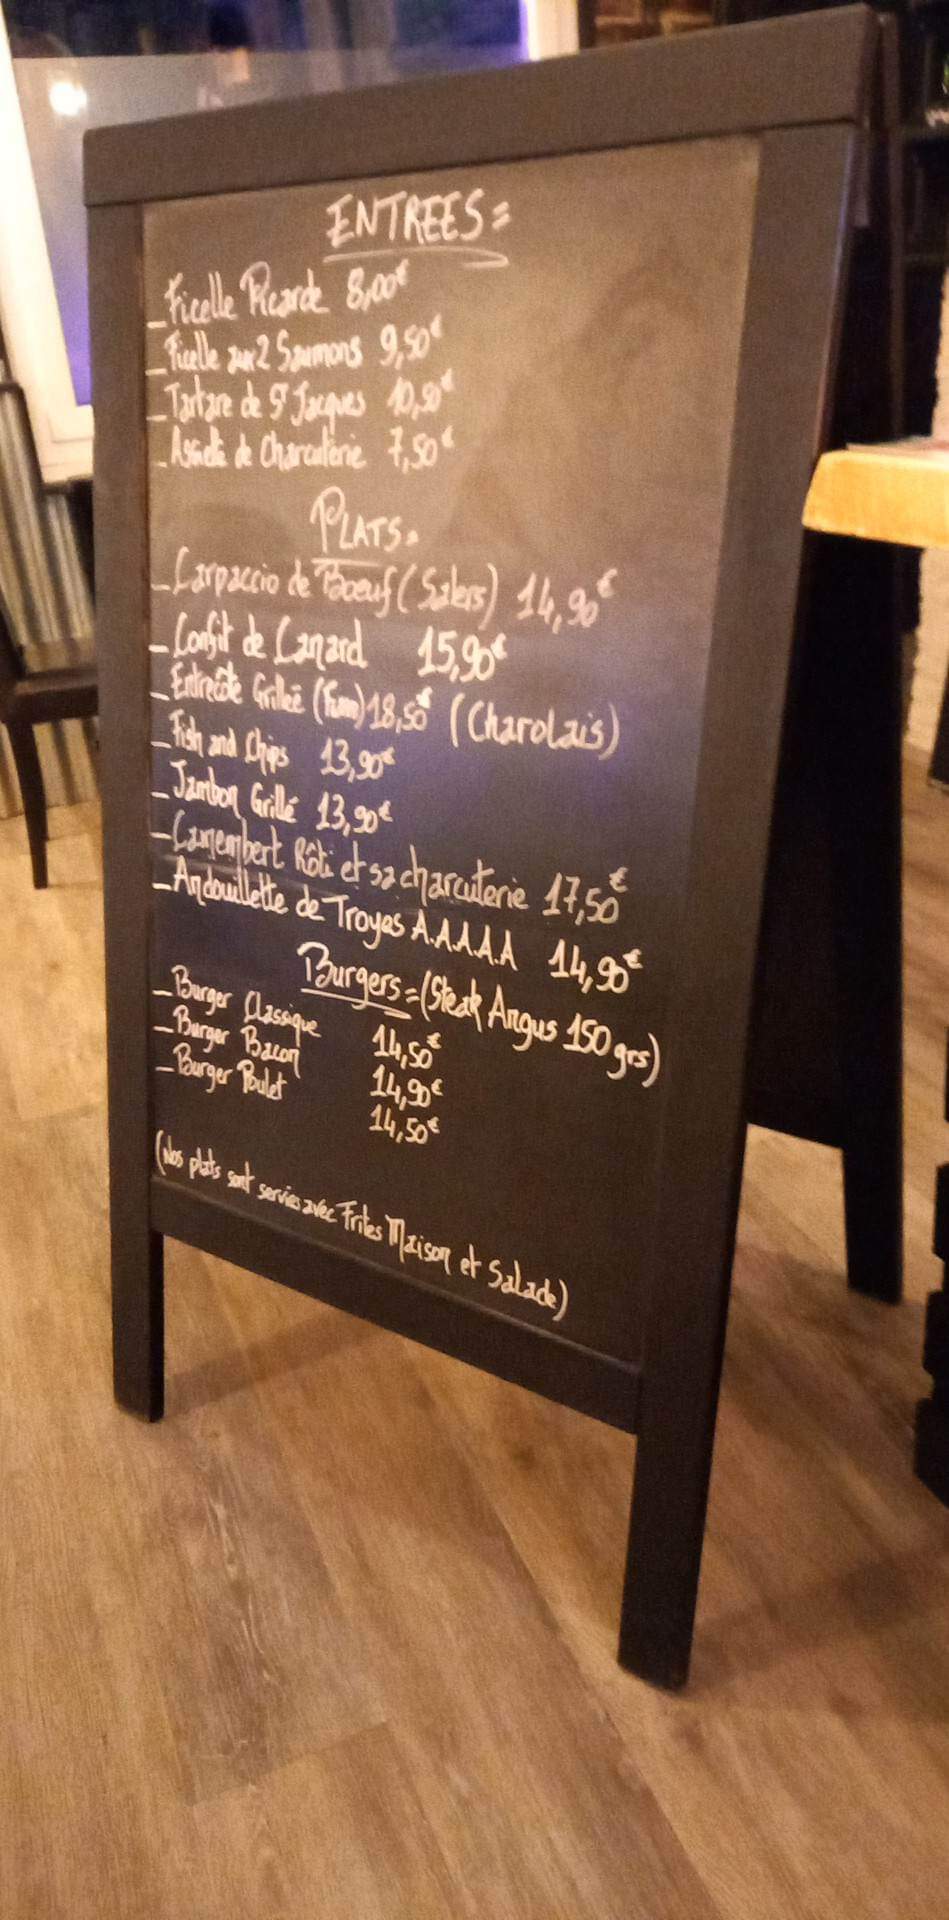 ENTREES=
_Ficelle Picarde 8,00€
_Ficelle aux 2 Saumons 9,50€
_Tartare de St Jacques 10,50€
_Assiette de Charcuterie 7,50€
PLATS=
_Carpaccio de Boeuf (Salers) 14,90€
_Confit de Canard 15,90€
_Entrecôte Grillée 18,50€ (Charolais)
_Fish and Chips 13,90€
_Jambon Grillé 13,90€
_Camembert Rôti et sa charcuterie 17,50€
_Andouillette de Troyes A.A.A.A.A 14,90€
Burgers=(Steak Angus 150 grs)
_Burger Classique 14,50€
_Burger Bacon 14,90€
_Burger Poulet 14,50€
(Nos plats sont servies avec Frites Maison et Salade)